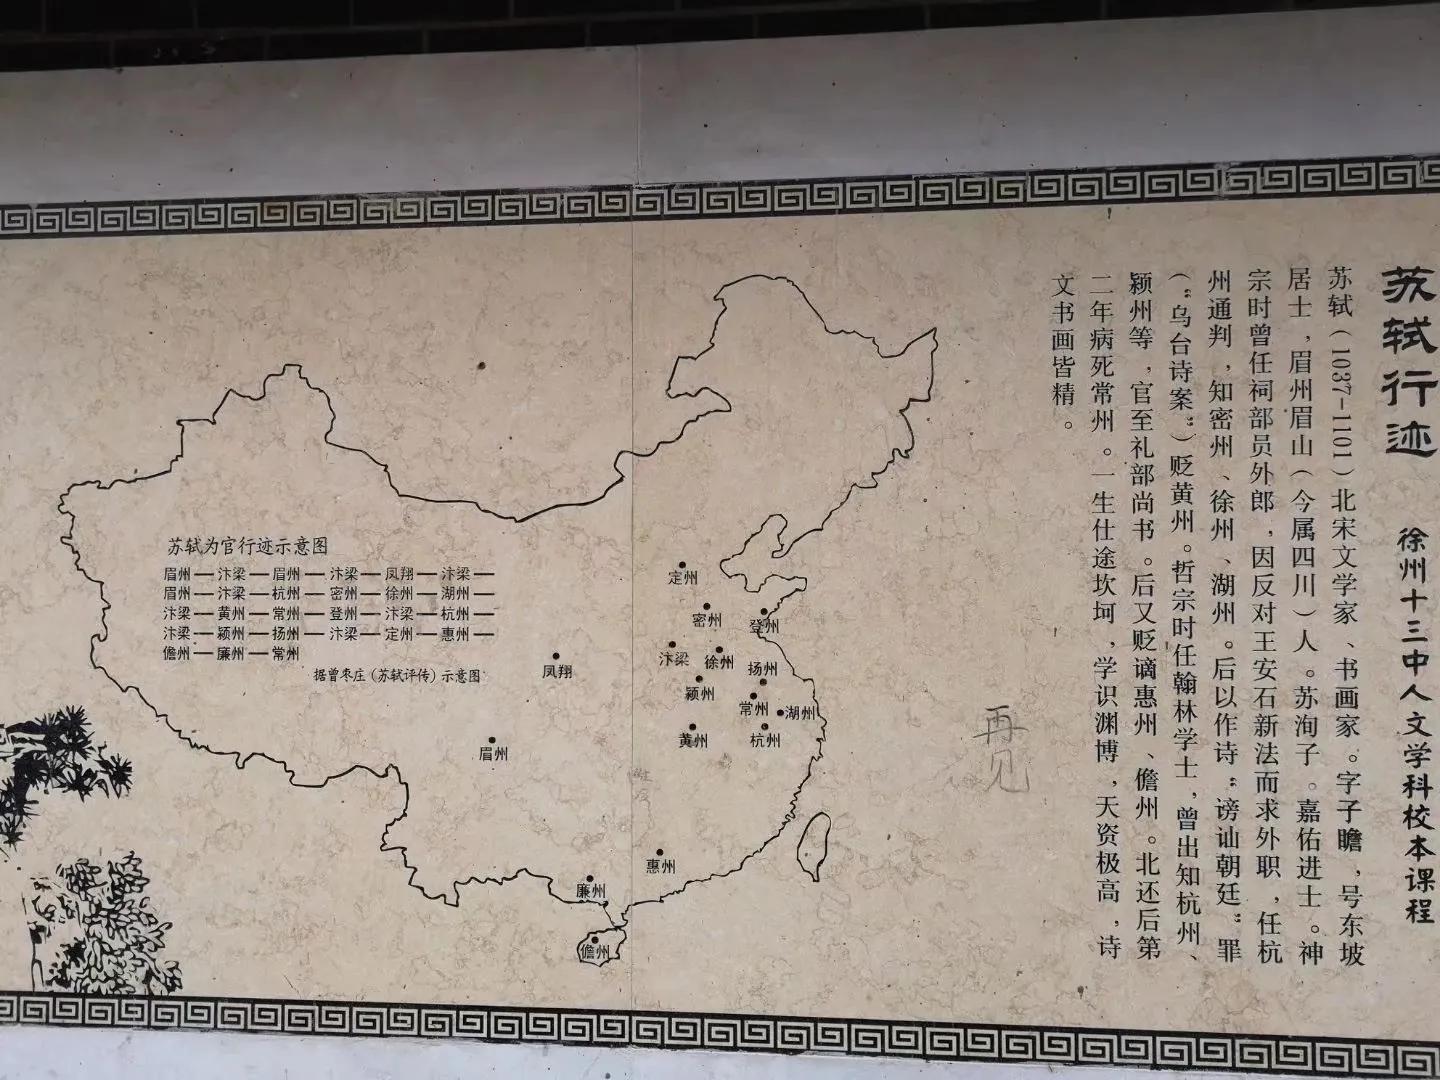 苏轼行迹
徐州十三中人文学科校本课程
苏轼（1037-1101）北宋文学家、书画家。字子瞻，号东坡
居士，眉州眉山（今属四川）人。苏洵子。嘉佑进士。神
宗时曾任祠部员外郎，因反对王安石新法而求外职，任杭
州通判，知密州、徐州、湖州。后以作诗“谤讪朝廷”罪
（“乌台诗案”）贬黄州。哲宗时任翰林学士，曾出知杭州、
颍州等，官至礼部尚书。后又贬谪惠州、儋州。北还后第
二年病死常州。一生仕途坎坷，学识渊博，天资极高，诗
文书画皆精。
苏轼为官行迹示意图
眉州—汴梁—眉州—汴梁—凤翔—汴梁—
眉州—汴梁—杭州—密州—徐州—湖州—
汴梁—黄州—常州—登州—汴梁—杭州—
汴梁—颍州—扬州—汴梁—定州—惠州—
儋州—廉州—常州
据曾枣庄（苏轼评传）示意图
定州
密州
登州
汴梁
徐州
凤翔
扬州
颍州
常州
湖州
黄州
杭州
眉州
惠州
廉州
儋州
再见